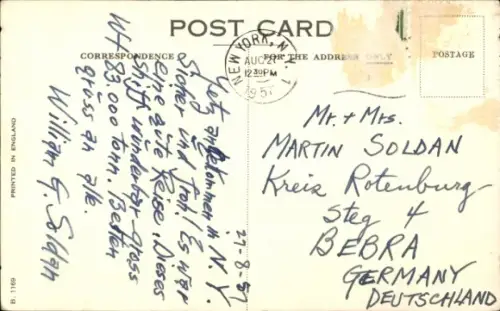 POST CARD
CORRESPONDENCE
FOR THE ADDRESS ONLY
POSTAGE
NEW YORK, N.Y.
AUG 27
12 30 PM
1957
27-8-57
Jetz angekommen in N.Y.
Sicher und froh. Es war
eine gute Reise. Dieses
Schiff wunderbar gross
Wt 83.000 tonn. Besten
grüss an alle.
William G. Soldan
Mr. + Mrs.
MARTIN SOLDAN
Kreis Rotenburg
Steg 4
BEBRA
GERMANY
DEUTSCHLAND
PRINTED IN ENGLAND
B. 1169